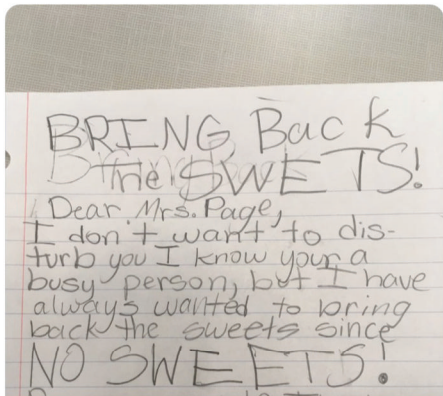 BRING Back
the SWETS!
Dear Mrs. Page,
I don't want to dis-
turb you I know your a
busy person, but I have
always wanted to bring
back the sweets since
NO SWEETS!